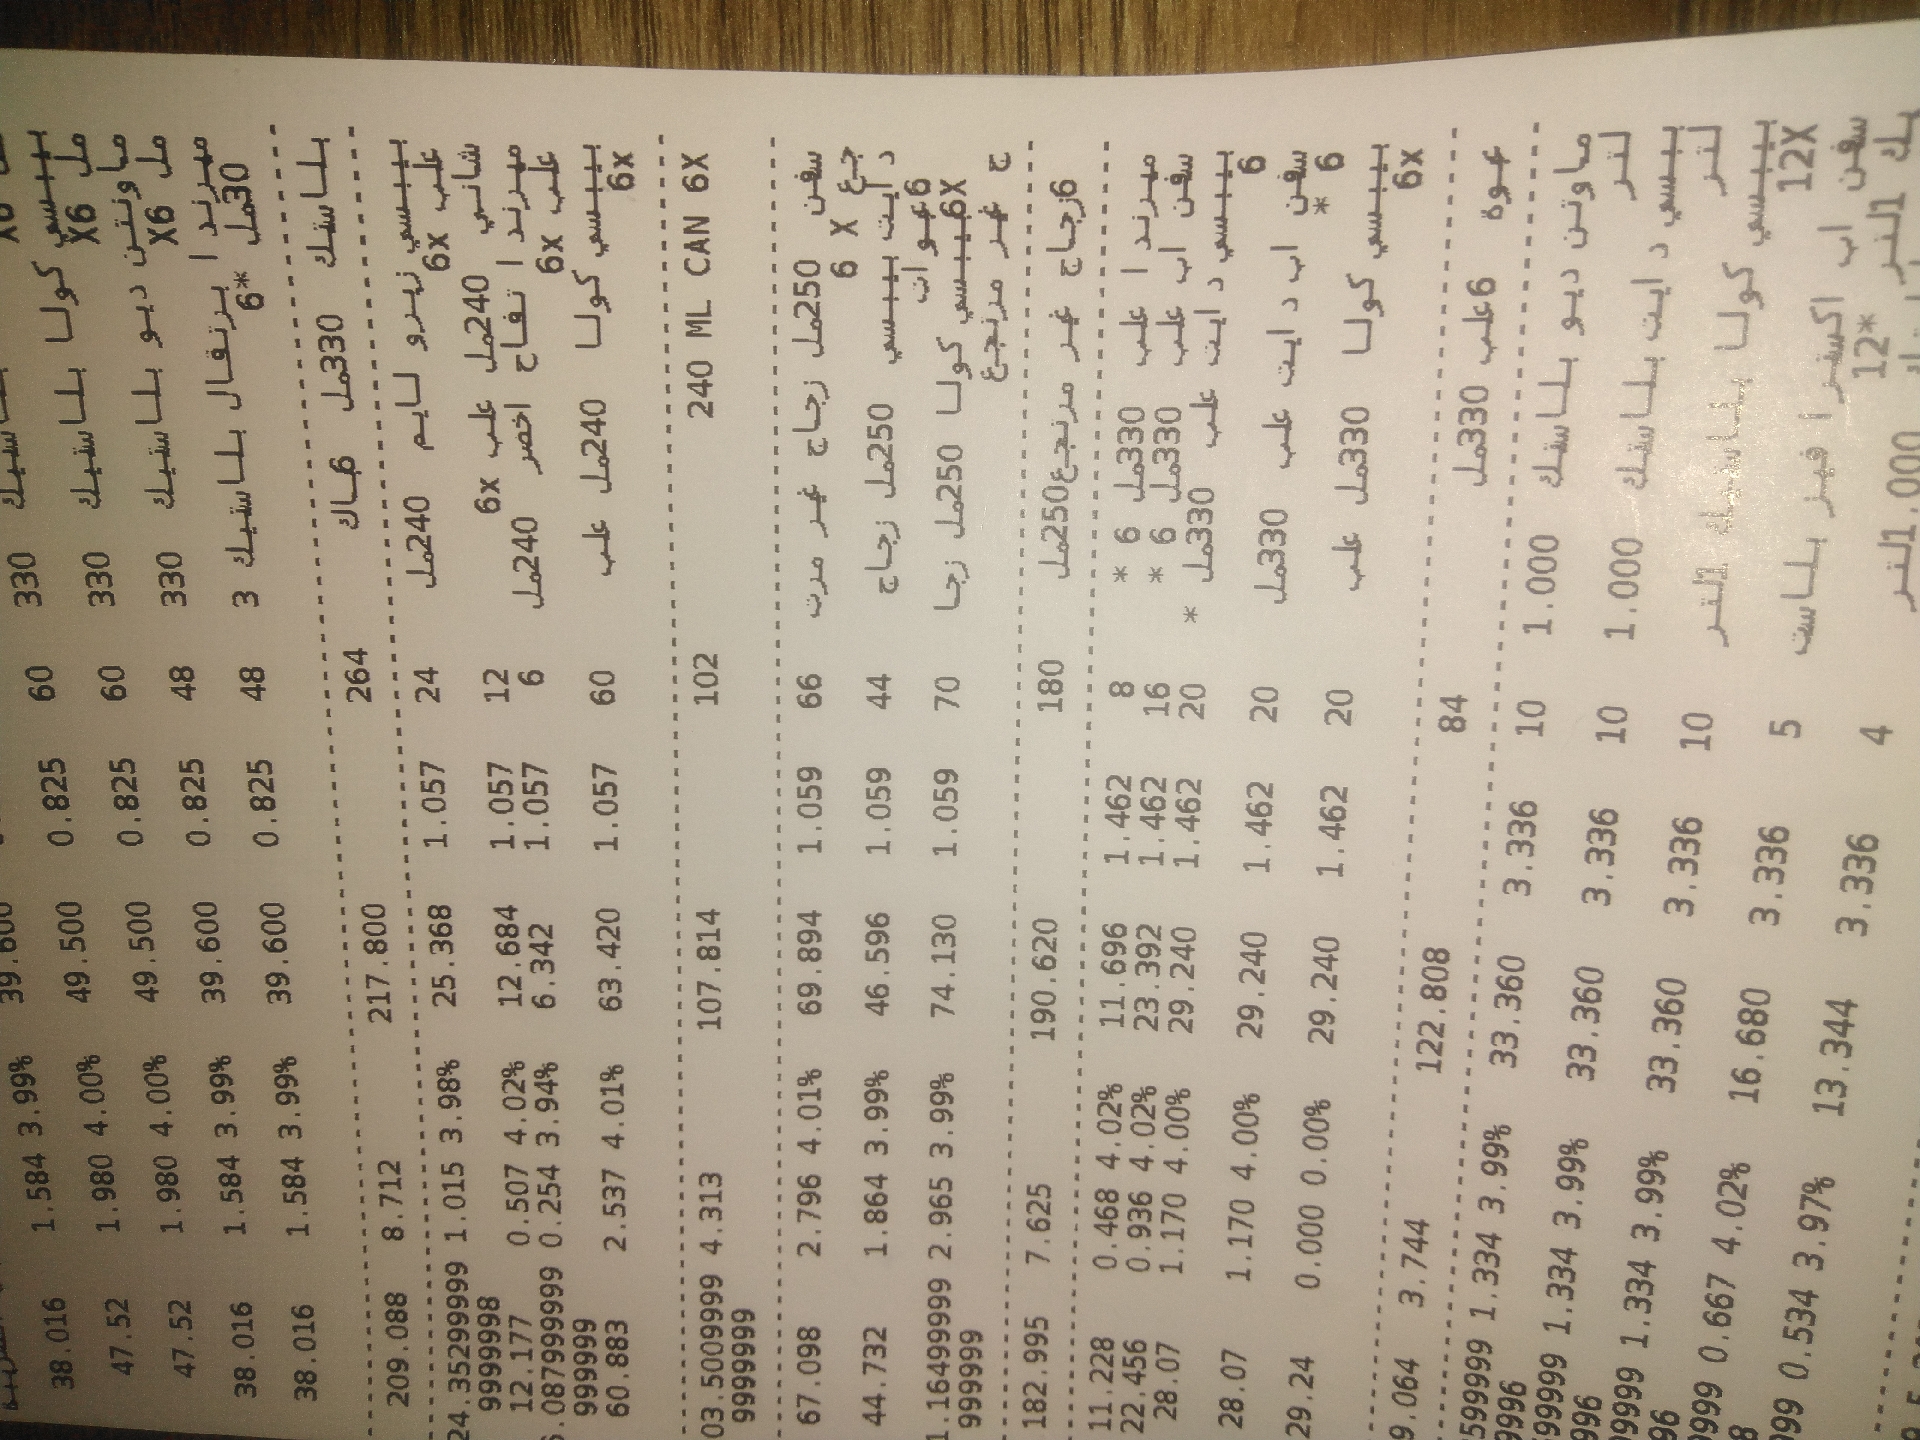 38.016 1.584 3.99% 39.600
47.52 1.980 4.00% 49.500 0.825 60 330
X6 مل
47.52 1.980 4.00% 49.500 0.825 60 بيبسي كولا بلاستيك 330
مل X6
38.016 1.584 3.99% 39.600 0.825 48 ماونتن ديو بلاستيك 330
مل X6
38.016 1.584 3.99% 39.600 0.825 48 ميرندا برتقال بلاستيك 3
30مل *6
209.088 8.712 217.800 264 بلاستك 330مل 6باك
24.35299999 1.015 3.98% 25.368 1.057 24 بيبسي زيرو لايم 240مل
9999998 علب 6x
12.177 0.507 4.02% 12.684 1.057 12 شاني 240مل علب 6x
.087999999 0.254 3.94% 6.342 1.057 6 ميرندا تفاح اخضر 240مل
999999 علب 6x
60.883 2.537 4.01% 63.420 1.057 60 بيبسي كولا 240مل علب
6x
03.5009999 4.313 107.814 102 240 ML CAN 6X
9999999
67.098 2.796 4.01% 69.894 1.059 66 سفن 250مل زجاج غير مرت
جع 6 X
44.732 1.864 3.99% 46.596 1.059 44 دايت بيبسي 250مل زجاج
6عبوات
1.16499999 2.965 3.99% 74.130 1.059 70 بيبسي كولا 250مل زجا
999999 ج غير مرتجع 6X
182.995 7.625 190.620 180 6زجاج غير مرتجع250مل
11.228 0.468 4.02% 11.696 1.462 8 ميرندا علب 330مل 6 *
22.456 0.936 4.02% 23.392 1.462 16 سفن اب علب 330مل 6 *
28.07 1.170 4.00% 29.240 1.462 20 بيبسي دايت علب 330مل *
6
28.07 1.170 4.00% 29.240 1.462 20 سفن اب دايت علب 330مل
* 6
29.24 0.000 0.00% 29.240 1.462 20 بيبسي كولا 330مل علب
6x
9.064 3.744 122.808 84 عبوة 6علب 330مل
599999 1.334 3.99% 33.360 3.336 10 ماونتن ديو بلاستك 1.000
9996 لتر
99999 1.334 3.99% 33.360 3.336 10 بيبسي دايت بلاستك 1.000
996 لتر
9999 1.334 3.99% 33.360 3.336 10 بيبسي كولا بلاستيك 1لتر
96 12X
9999 0.667 4.02% 16.680 3.336 5 سفن اب اكسترا فيز بلاست
8 يك 1لتر *12
999 0.534 3.97% 13.344 3.336 4 1.000لتر